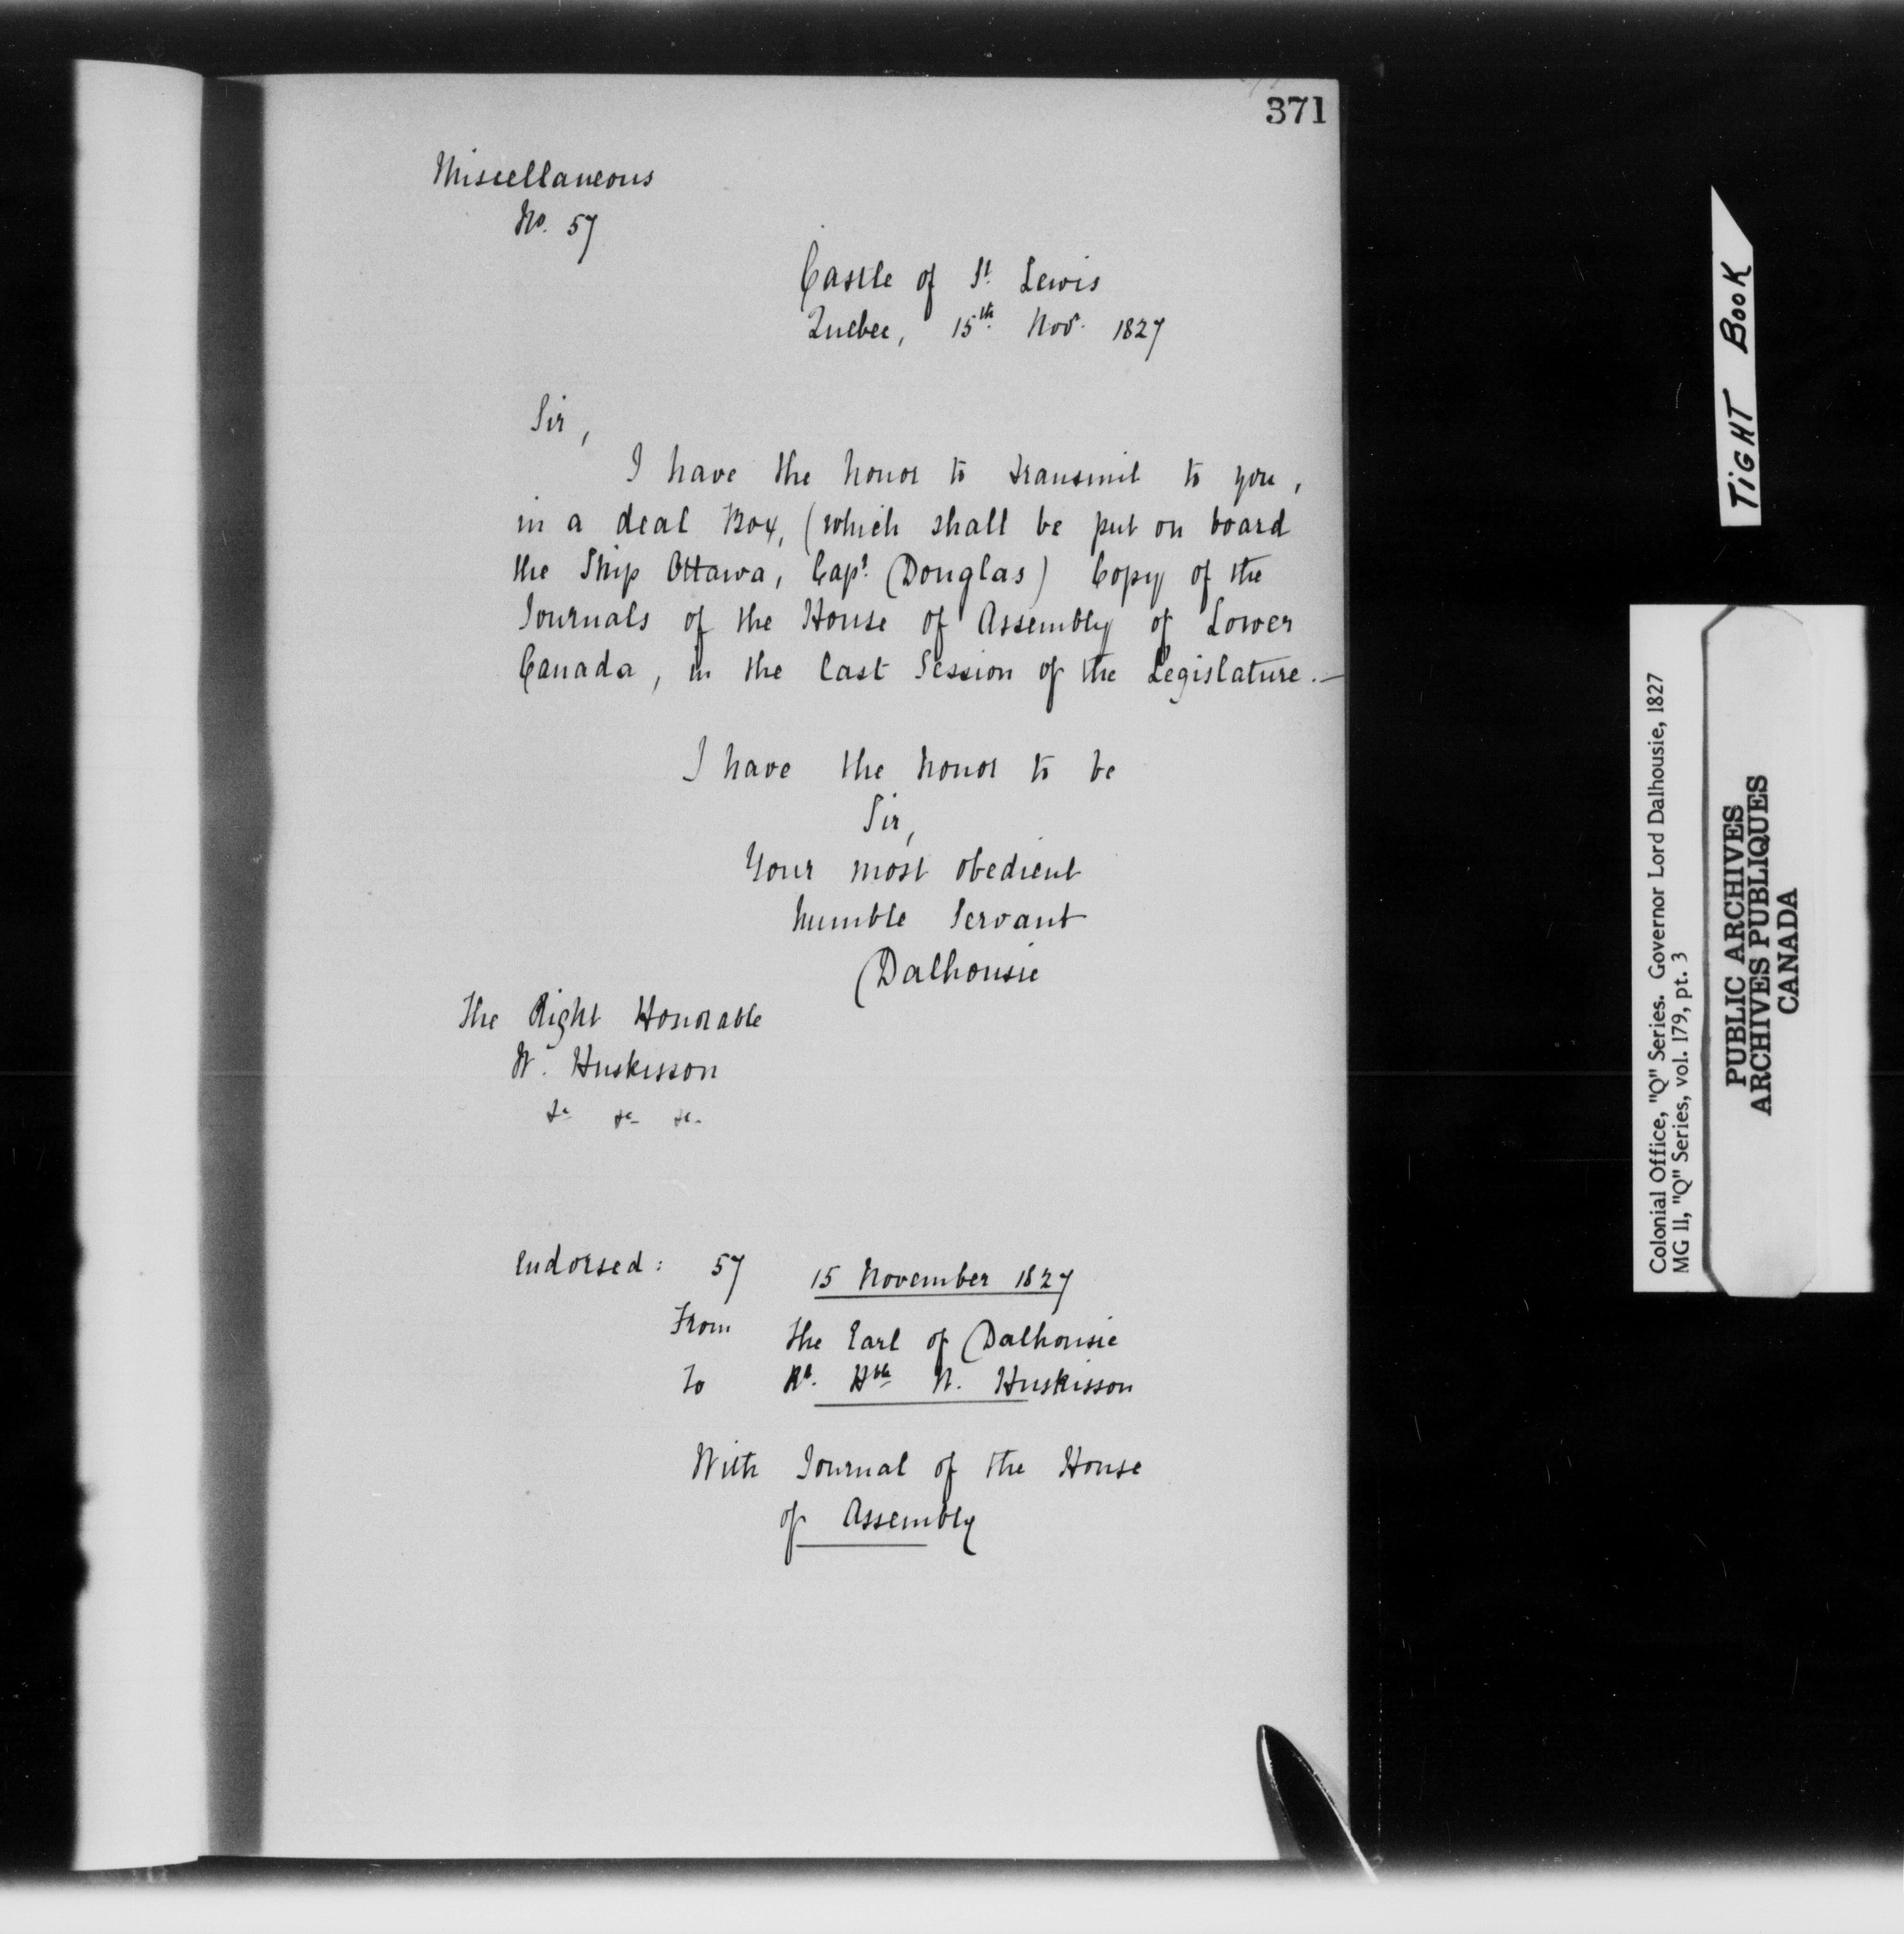 371
Miscellaneous
No. 57
Castle of St. Lewis
Quebec, 15th. Novr. 1827
Sir,
I have the honor to transmit to you,
in a deal Box, (which shall be put on board
the Ship Ottawa, Capt. Douglas) Copy of the
Journals of the House of Assembly of Lower
Canada, in the last Session of the Legislature.—
I have the honor to be
Sir,
Your most obedient
humble Servant
Dalhousie
The Right Honorable
W. Huskisson
&c &c &c.
Endorsed: 57 15 November 1827
From The Earl of Dalhousie
To Rt. Hble W. Huskisson
With Journal of the House
of Assembly
TIGHT BOOK
Colonial Office, "Q" Series. Governor Lord Dalhousie, 1827
MG 11, "Q" Series, vol. 179, pt. 3
PUBLIC ARCHIVES
ARCHIVES PUBLIQUES
CANADA